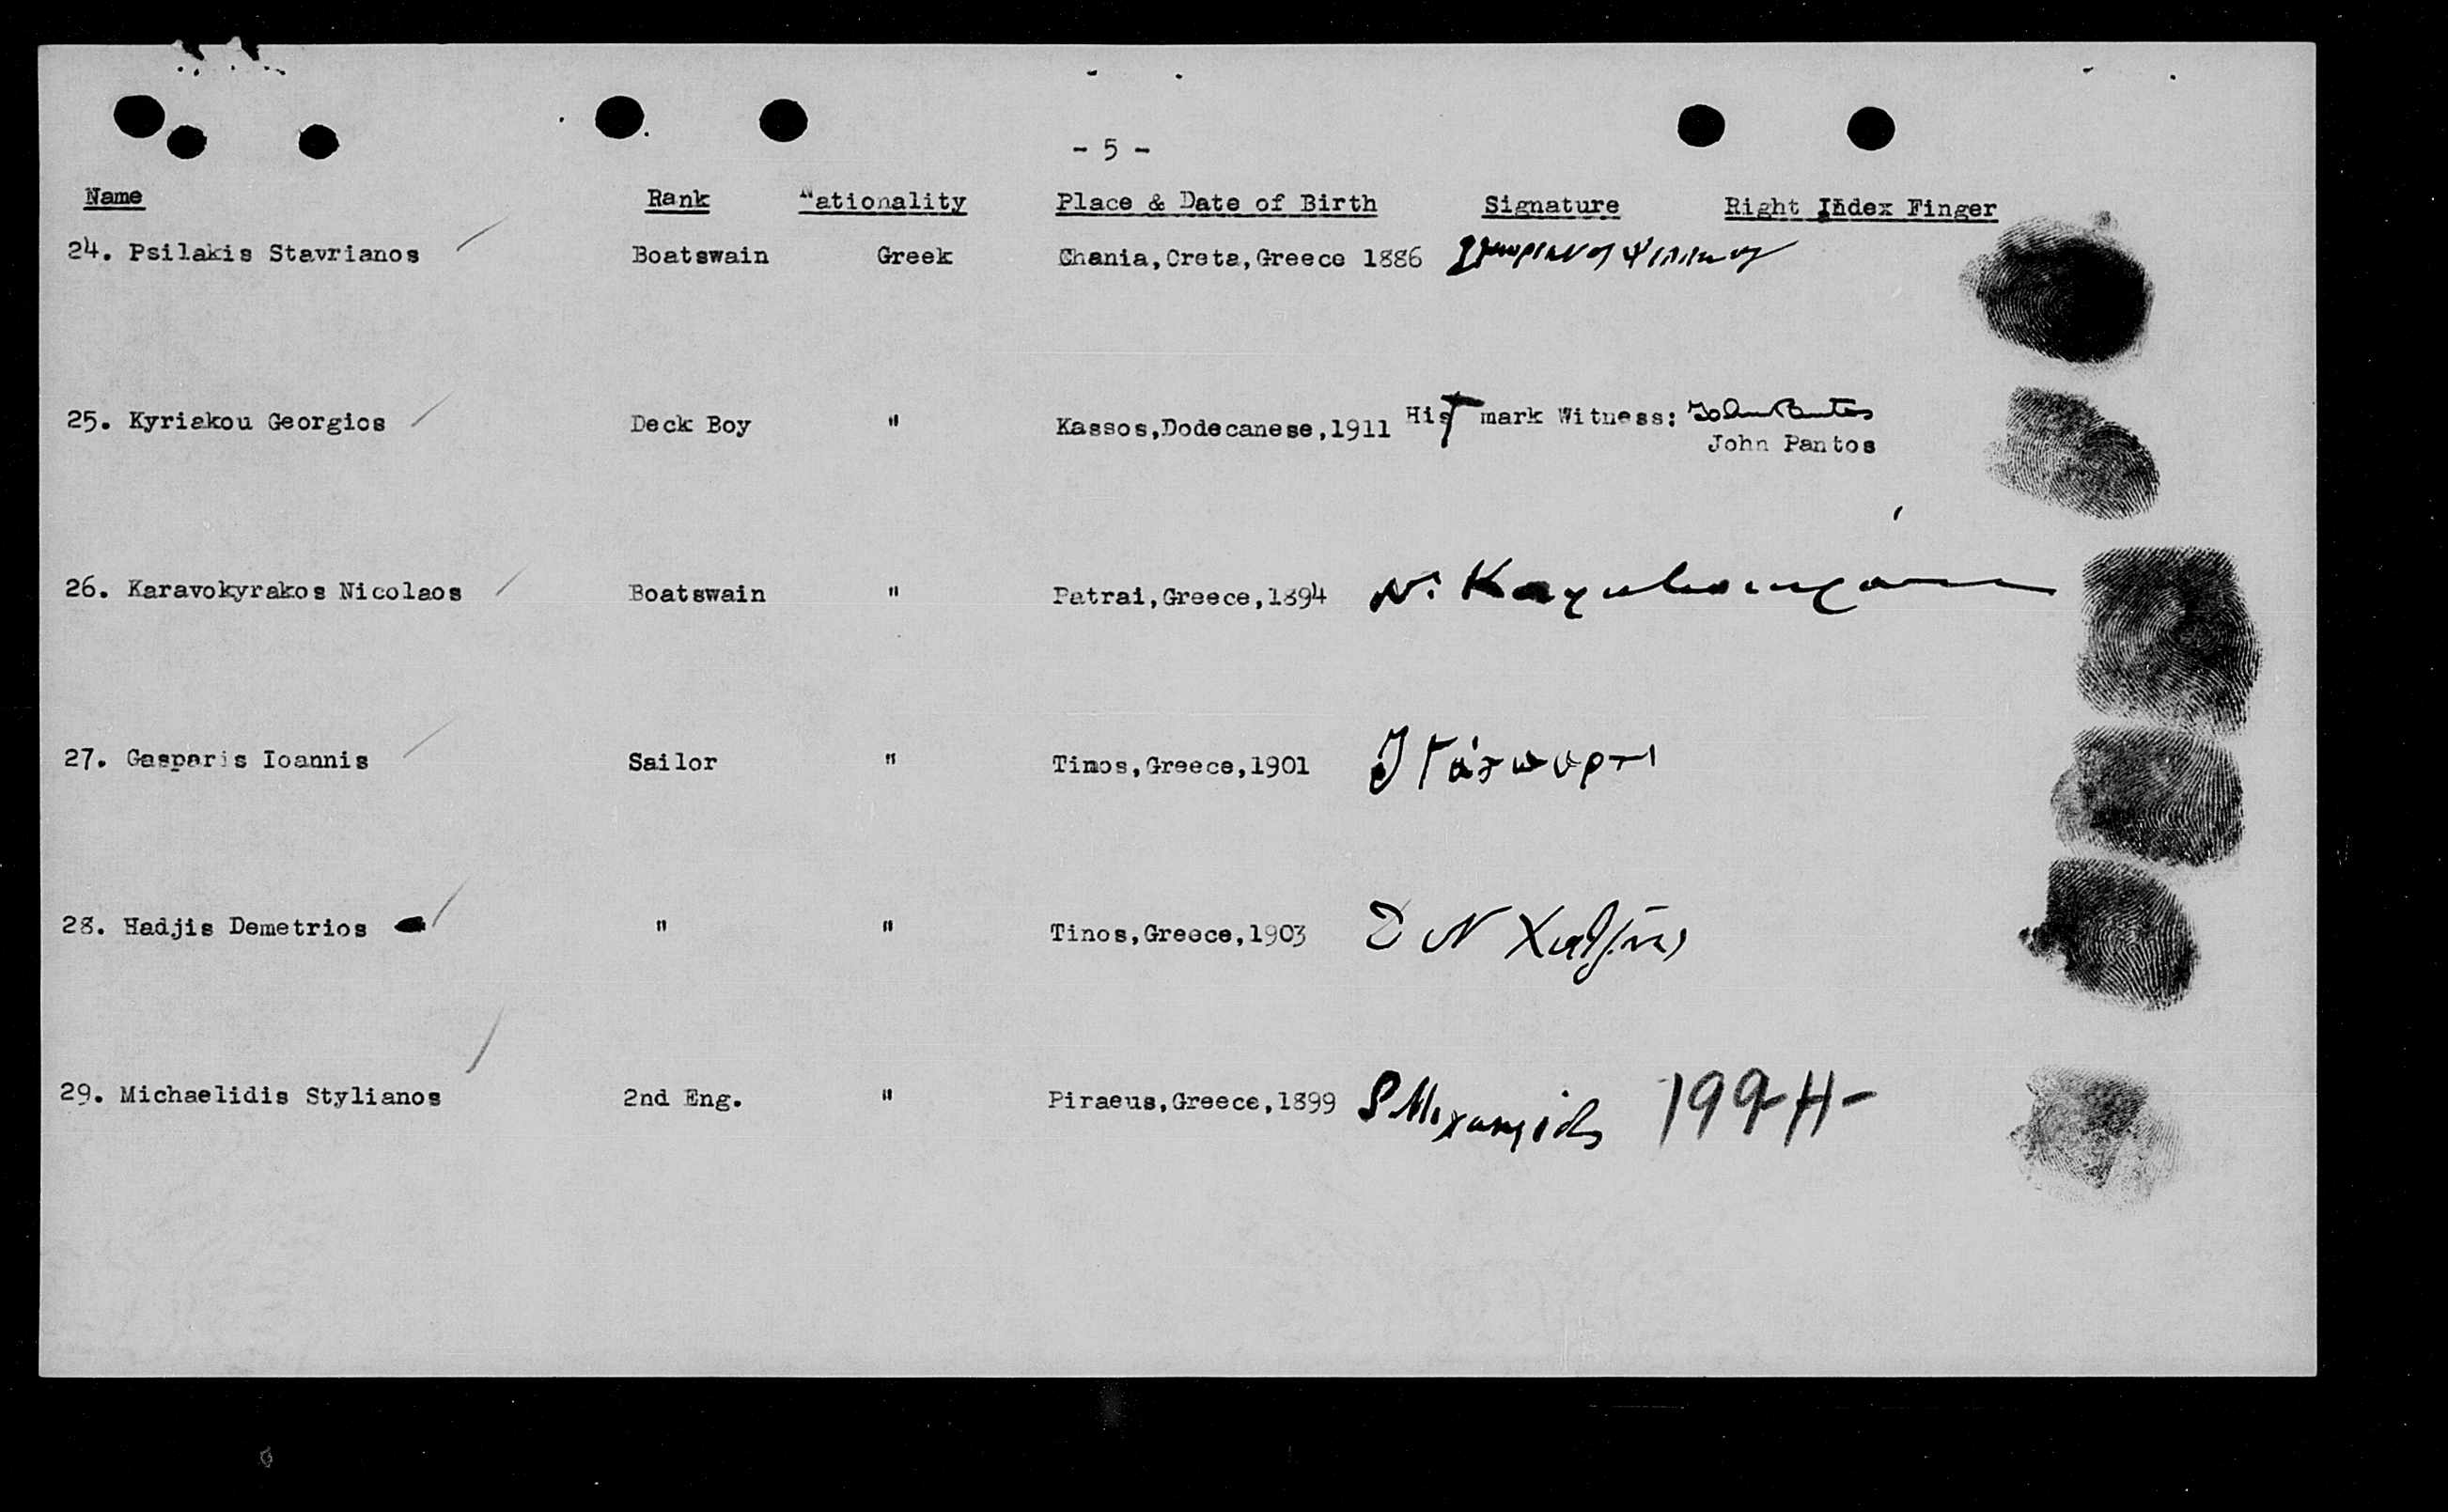 - 5 -
Name Rank Nationality Place & Date of Birth Signature Right Index Finger
24. Psilakis Stavrianos Boatswain Greek Chania,Creta,Greece 1886
25. Kyriakou Georgios Deck Boy " Kassos,Dodecanese,1911 His mark Witness: John Pantos
John Pantos
26. Karavokyrakos Nicolaos Boatswain " Patrai,Greece,1894 Ν.
27. Gasparis Ioannis Sailor " Tinos,Greece,1901
28. Hadjis Demetrios " " Tinos,Greece,1903
29. Michaelidis Stylianos 2nd Eng. " Piraeus,Greece,1899 199-H-